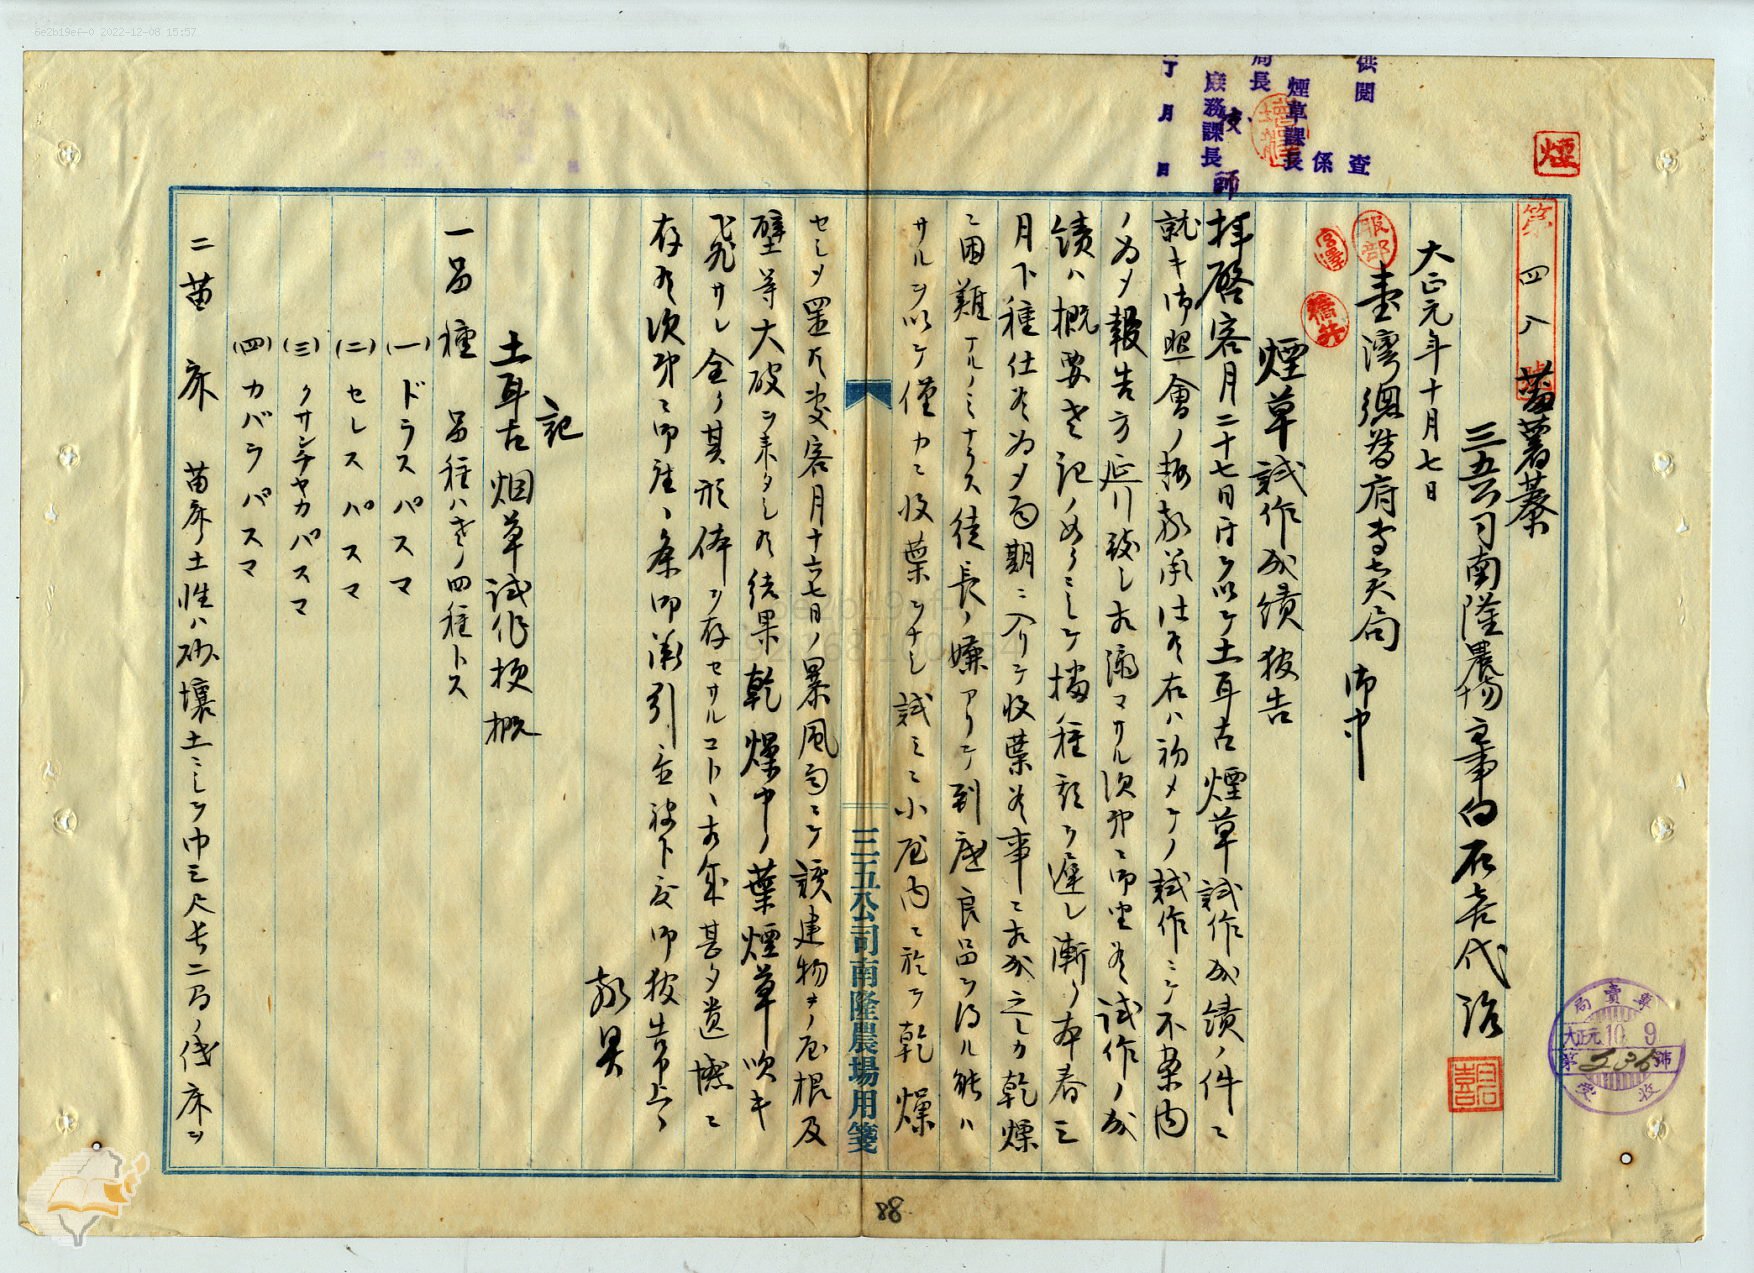 6e2b19ef-0 2022-12-08 15:57
供閲
査
係
煙草課長
局長
庶務課長
月 日
煙
第四八號
蕃薯藔
三五公司南隆農場主事白石喜代治
大正元年十月七日
臺灣總督府専売局 御中
服部
宮澤
煙草試作成績報告
拝啓客月二十七日付ヲ以テ土耳古煙草試作成績ノ件ニ
就キ御照會ノ趣敬承仕候右ハ初メテノ試作ニテ不案内
ノ為メ報告方延引致し相済マサル次第ニ御座候試作ノ成
績ハ概要左記ノ如クニシテ播種期ヲ遅レ漸ク本春三
月下種仕候為メ雨期ニ入リテ収葉候事ニ相成之レカ乾燥
ニ困難ナルノミナラス徒長ノ嫌アリテ到底良品ヲ得ル能ハ
サルヲ以テ僅カニ収葉ヲナシ試ミニ小屋内ニ於テ乾燥
セシメ置候處客月十六七日ノ暴風雨ニテ該建物ノ屋根及
壁等大破ヲ来タシ候結果乾燥中ノ葉煙草吹キ
飛サレ全ク其形体ヲ存セサルコトヽ相成甚タ遺憾ニ
存候次第ニ御座候條御諒引被下度御報告申上候
敬具
記
土耳古烟草試作梗概
一品種 品種ハ左ノ四種トス
(一)ドラスパスマ
(二)セレスパスマ
(三)クサンチヤカバスマ
(四)カバラバスマ
二苗床 苗床土性ハ砂壌土ニシテ巾三尺長二間ノ低床ヲ
三五公司南隆農場用箋
専賣局
大正元 10. 9
第 號
収受
88